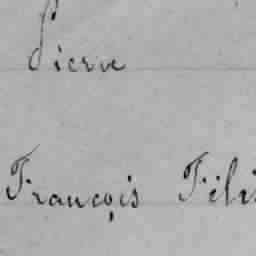 Pierre
François Féli